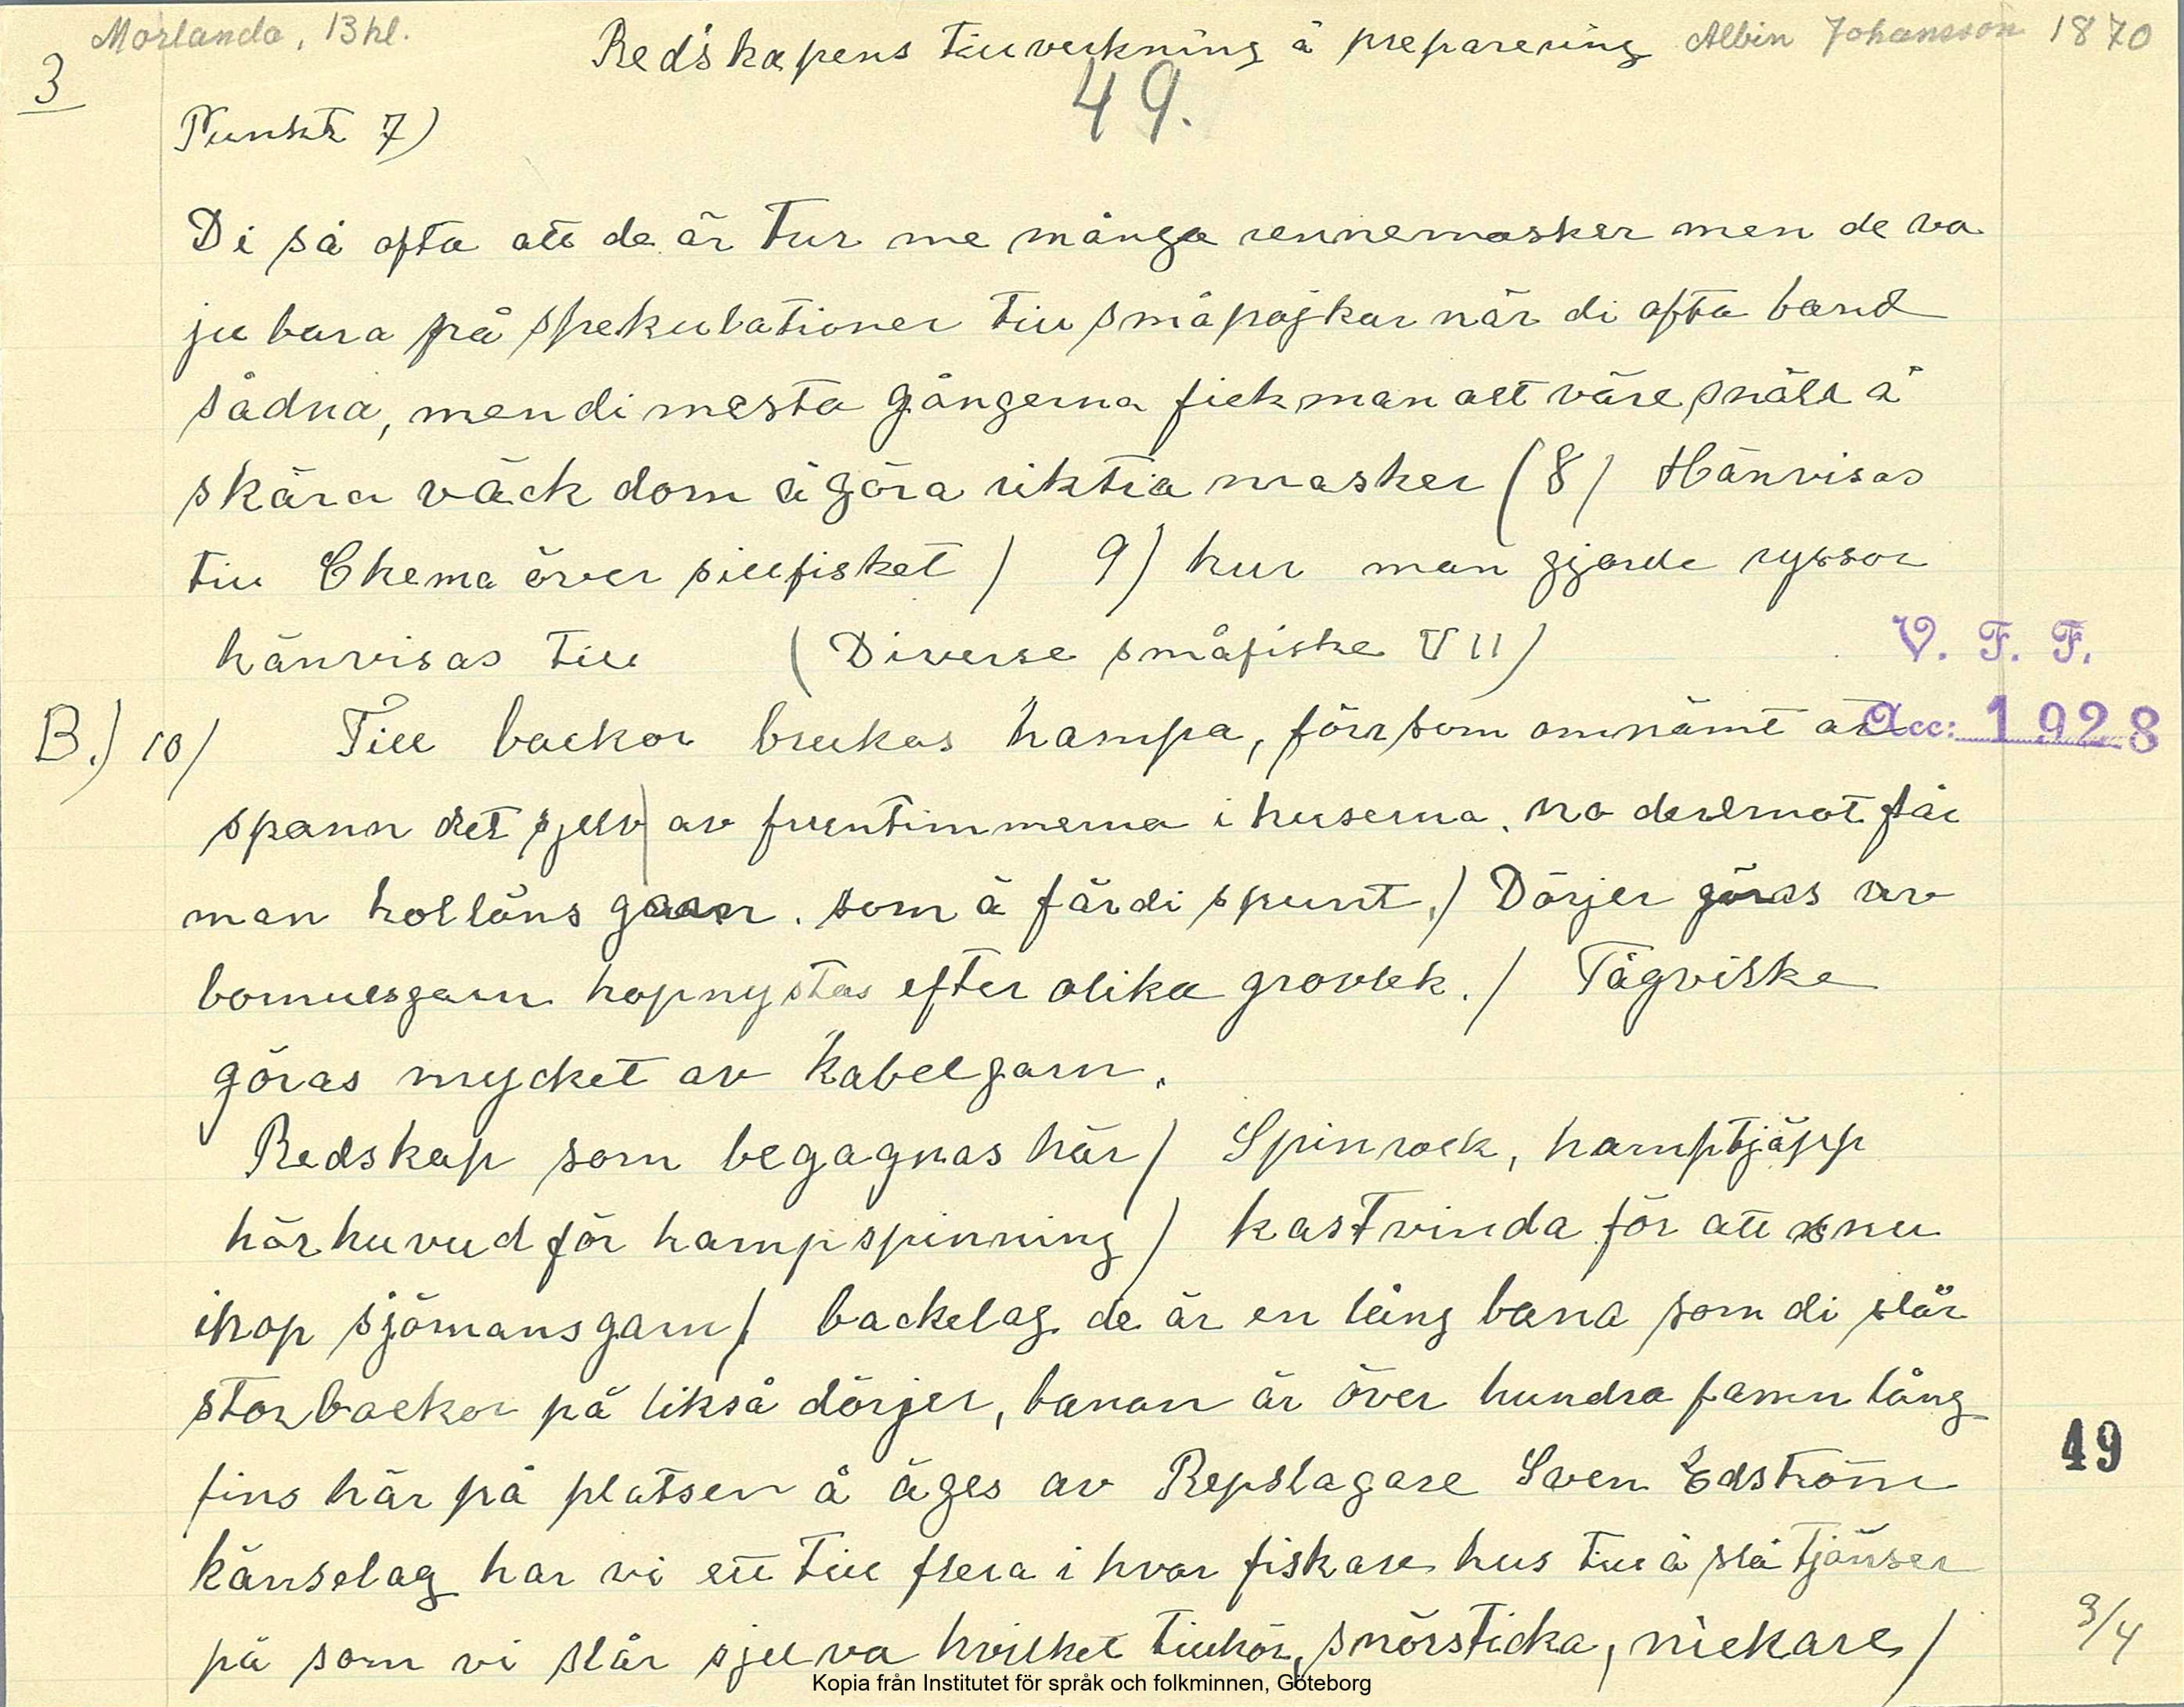 Morlanda, 13 hl.
Redskapens tillverkning å preparering
Albin Johansson 1870
3
49.
Punkt 7)
Di så ofta att de är tur me många rennemasker men de va
ju bara på spekulationer till småpojkar när di ofta band
sådna, men di mesta gångerna fick man allt väre snäll å
skära väck dom å göra riktia masker (8/ Hänvisas
till Chema över sillfisket) 9) hur man gjorde ryssor
hänvisas till (Diverse småfiske VII)
V. F. F.
B.) 10/ Till backor brukas hampa, förr som omnämt
Acc: 1928
spann det sjelv av fruntimmerna i huserna. no deremot får
man holläns garn. som ä färdi spunt./ Dörjer göras av
bomullsgarn hopnystas efter olika grovlek./ Tågviske
göras mycket av kabelgarn.
Redskap som begagnas här/ Spinrock, hamptjäpp
hörhuvud för hampspinning/ kastvinda för att snu
ihop sjömansgarn/ backelag de är en lång bana som di slår
storbackor på likså dörjer, banan är över hundra famn lång
fins här på platsen å äges av Repslagare Sven Edström
49
känselag har vi ett till flera i hvar fiskare hus till å slå tjänser
på som vi slår sjelva hvilket tillhör, snörsticka, niekare/
3/4
Kopia från Institutet för språk och folkminnen, Göteborg